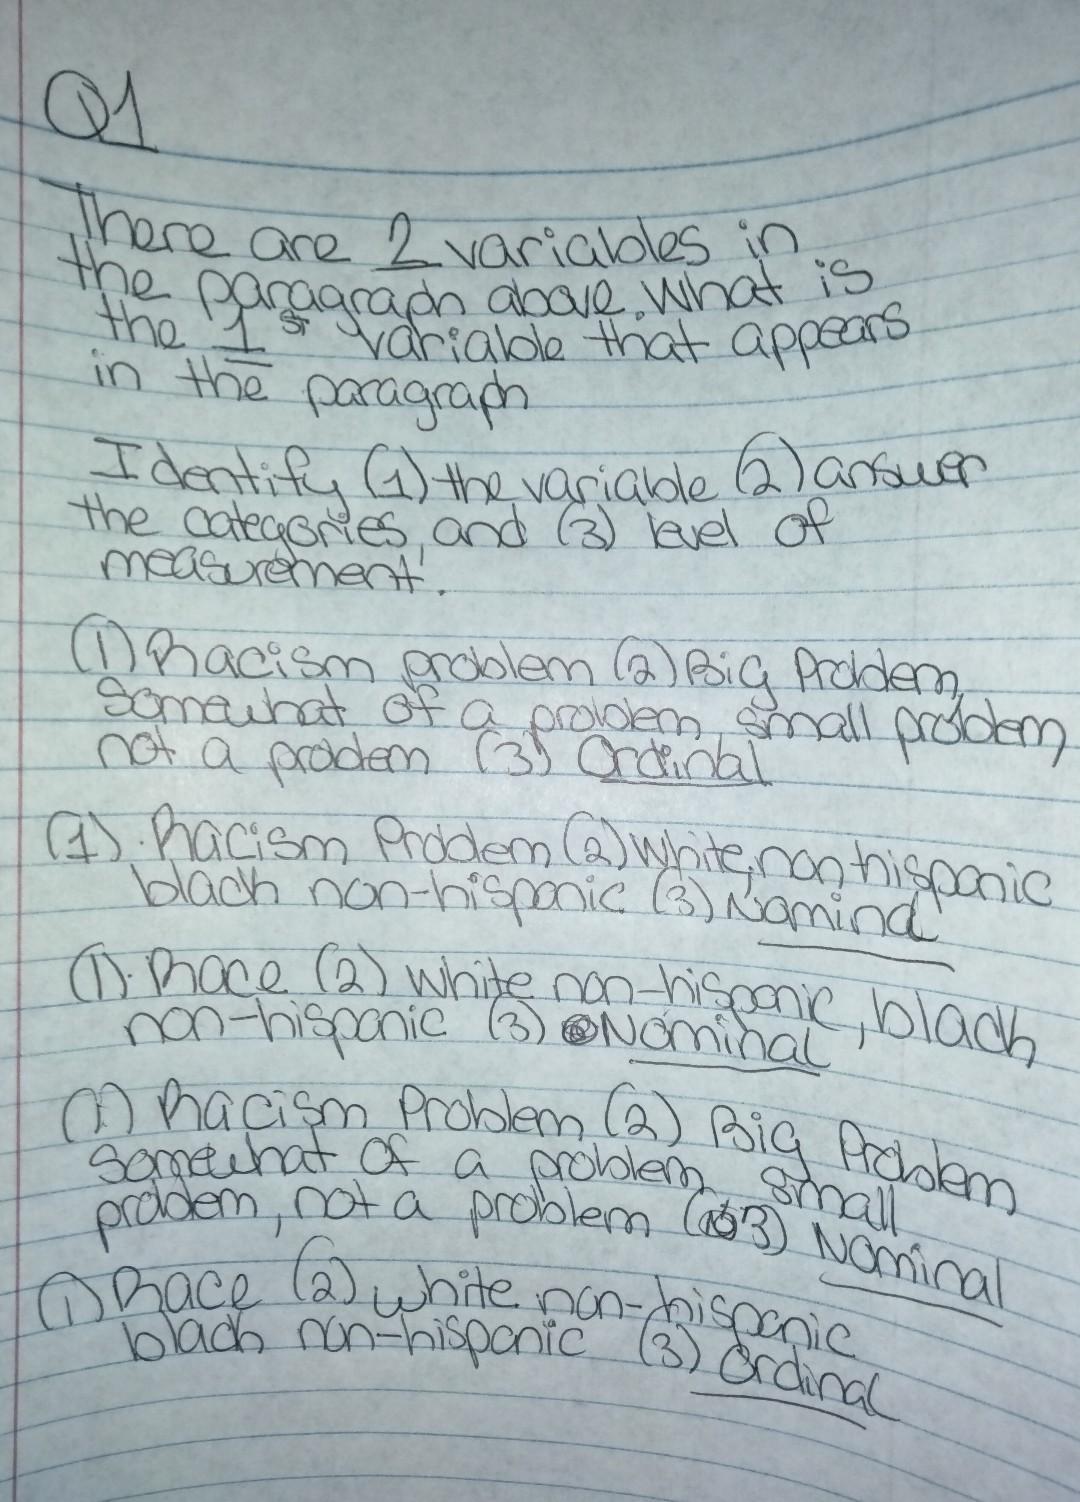 Q1
There are 2 variables in
the paragraph above. What is
the 1st variable that appears
in the paragraph
Identify (1) the variable (2) answer
the categories, and (3) level of
measurement.
(1) Racism problem (2) Big Problem,
Somewhat of a problem, small problem
not a problem (3) Ordinal
(1). Racism Problem (2) White, non hispanic
black non-hispanic (3) Nominal
(1). Race (2) white non-hispanic, black
non-hispanic (3) Nominal
(1) Racism Problem (2) Big Problem
Somewhat of a problem, small
problem, not a problem (3) Nominal
(1) Race (2) white non-hispanic
black non-hispanic (3) Ordinal